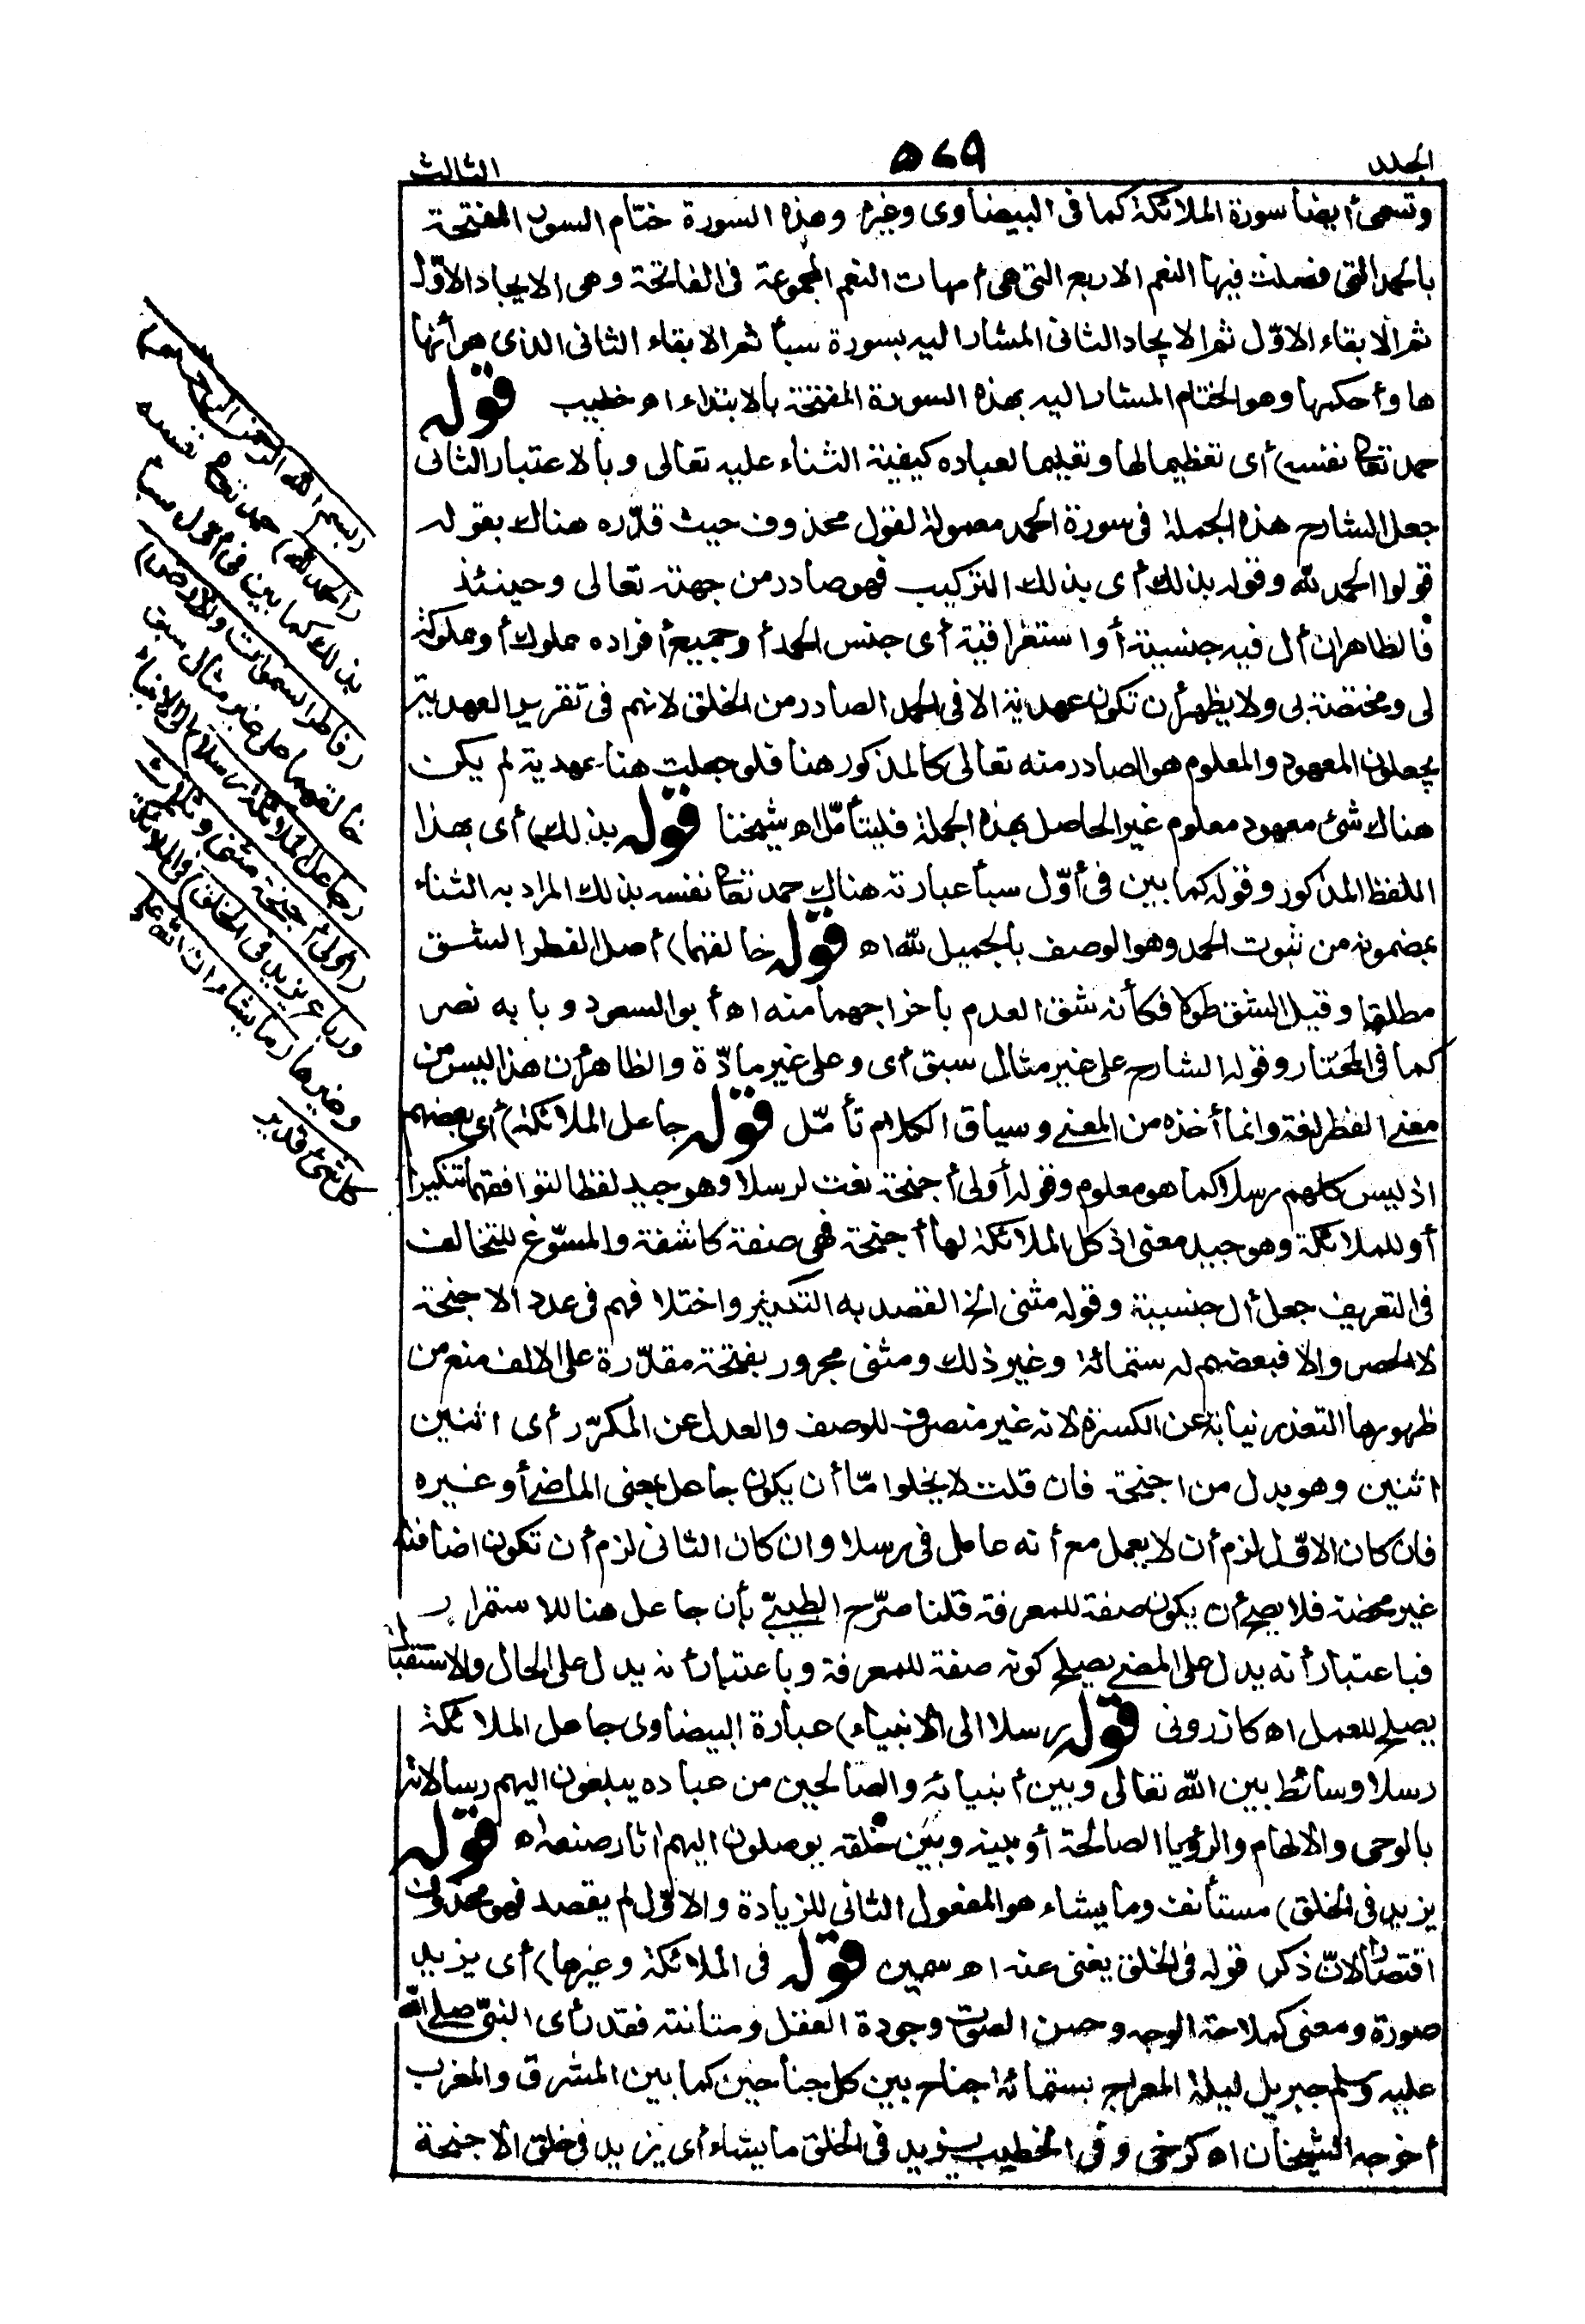 المجلد
٥٢٩
الثالث
وتسمى أيضا سورة الملائكة كما فى البيضاوى وغيره وهذه السورة ختام السور المفتتحة
بالحمد التى فصلت فيها النعم الاربع التى هى أمهات النعم المجموعة فى الفاتحة وهى الايجاد الاوّل
ثم الابقاء الاوّل ثم الايجاد الثانى المشار اليه بسورة سبأ ثم الابقاء الثانى الذى هو أنها
ها وأحكمها وهو الختام المشار اليه بهذه السورة المفتتحة بالابتداء اه خطيب قوله
حمد تعالى نفسه) أى تعظيما لها وتعليما لعباده كيفية الثناء عليه تعالى وبالاعتبار الثانى
جعل الشارح هذه الجملة فى سورة الحمد معمولة لقول محذوف حيث قدّره هناك بقوله
قولوا الحمد لله وقوله بذلك أى بذلك التركيب فهو صادر من جهته تعالى وحينئذ
فالظاهر ان أل فيه جنسية أو استغراقية أى جنس الحمد أو جميع أفراده مملوك أو مملوكة
لى ومختصة بى ولا يظهر أن تكون عهدية الا فى الحمد الصادر من الخلق لانهم فى تقرير العهدية
يجعلون المعهود والمعلوم هو الصادر منه تعالى كالمذكور هنا فلو جعلت هنا عهدية لم يكن
هناك شئ معهود معلوم غير الحاصل بهذه الجملة فليتأمّل اه شيخنا قوله بذلك) أى بهذا
اللفظ المذكور وقوله كما بين فى أوّل سبأ عبارته هناك حمد تعالى نفسه بذلك المراد به الثناء
بمضمونه من ثبوت الحمد وهو الوصف بالجميل لله اه قوله خالقهما) أصل الفطر الشق
مطلقا وقيل الشق طولا فكأنه شق العدم باخراجهما منه اه أبو السعود وبابه نصر
كما فى المختار وقوله الشارح على غير مثال سبق أى وعلى غير مادّة والظاهر أن هذا ليس من
معنى الفطر لغة وانما أخذه من المعنى وسياق الكلام تأمّل قوله جاعل الملائكة) أى بعضهم
اذ ليس كلهم رسلا كما هو معلوم وقوله أولى أجنحة نعت لرسلا وهو جيد لفظا لتوافقهما تنكيرا
أو للملائكة وهو جيد معنى اذ كل الملائكة لها أجنحة فهى صفة كاشفة والمسوّغ للتخالف
فى التعريف جعل أل جنسية وقوله مثنى الخ القصد به التكثير واختلافهم فى عدد الاجنحة
لا الحصر والا فبعضهم له ستمائة وغير ذلك ومثنى مجرور بفتحة مقدّرة على الالف منع من
ظهورها التعذر نيابة عن الكسرة لانه غير منصرف للوصف والعدل عن المكرّر أى اثنين
اثنين وهو بدل من اجنحة فان قلت لا يخلوا مّا أن يكون جاعل بمعنى الماضى أو غيره
فان كان الاوّل لزم أن لا يعمل مع أنه عامل فى رسلا وان كان الثانى لزم أن تكون اضافته
غير محضة فلا يصح أن يكون صفة للمعرفة قلنا صرّح الطيبىّ بأن جاعل هنا للاستمرار
فباعتبار أنه يدل على المضى يصلح كونه صفة للمعرفة وباعتبار أنه يدل على الحال والاستقبال
يصلح للعمل اه كازرونى قوله رسلا الى الانبياء) عبارة البيضاوى جاعل الملائكة
رسلا وسائط بين الله تعالى وبين أنبيائه والصالحين من عباده يبلغون اليهم رسالاته
بالوحى والالهام والرؤيا الصالحة أو بينه وبين خلقه يوصلون اليهم اثار صنعه اه قوله
يزيد فى الخلق) مستأنف وما يشاء هو المفعول الثانى للزيادة والاوّل لم يقصد فهو محذوف
اقتصارا لانّ ذكر قوله فى الخلق يغنى عنه اه سمين قوله فى الملائكة وغيرها) أى يزيد
صورة ومعنى كملاحة الوجه وحسن الصوت وجودة العقل ومتانته فقد رأى النبىّ صلى الله
عليه وسلم جبريل ليلة المعراج بستمائة جناح بين كل جناحين كما بين المشرق والمغرب
أخرجه الشيخان اه كرخى وفى الخطيب يزيد فى الخلق ما يشاء أى يزيد فى خلق الاجنحة
(بسم الله الرحمن الرحيم
(الحمد لله) حمد تعالى نفسه
بذلك كما بين فى أول سبأ
(فاطر السموات والارض)
خالقهما على غير مثال سبق
(جاعل الملائكة رسلا) الى الانبياء
(أولى أجنحة مثنى وثلاث
ورباع يزيد فى الخلق) فى الملائكة
وغيرها (ما يشاء ان الله على
كل شئ قدير